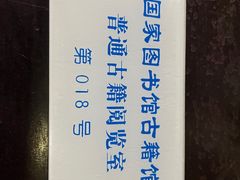 国家图书馆古籍馆
普通古籍阅览室
第018号